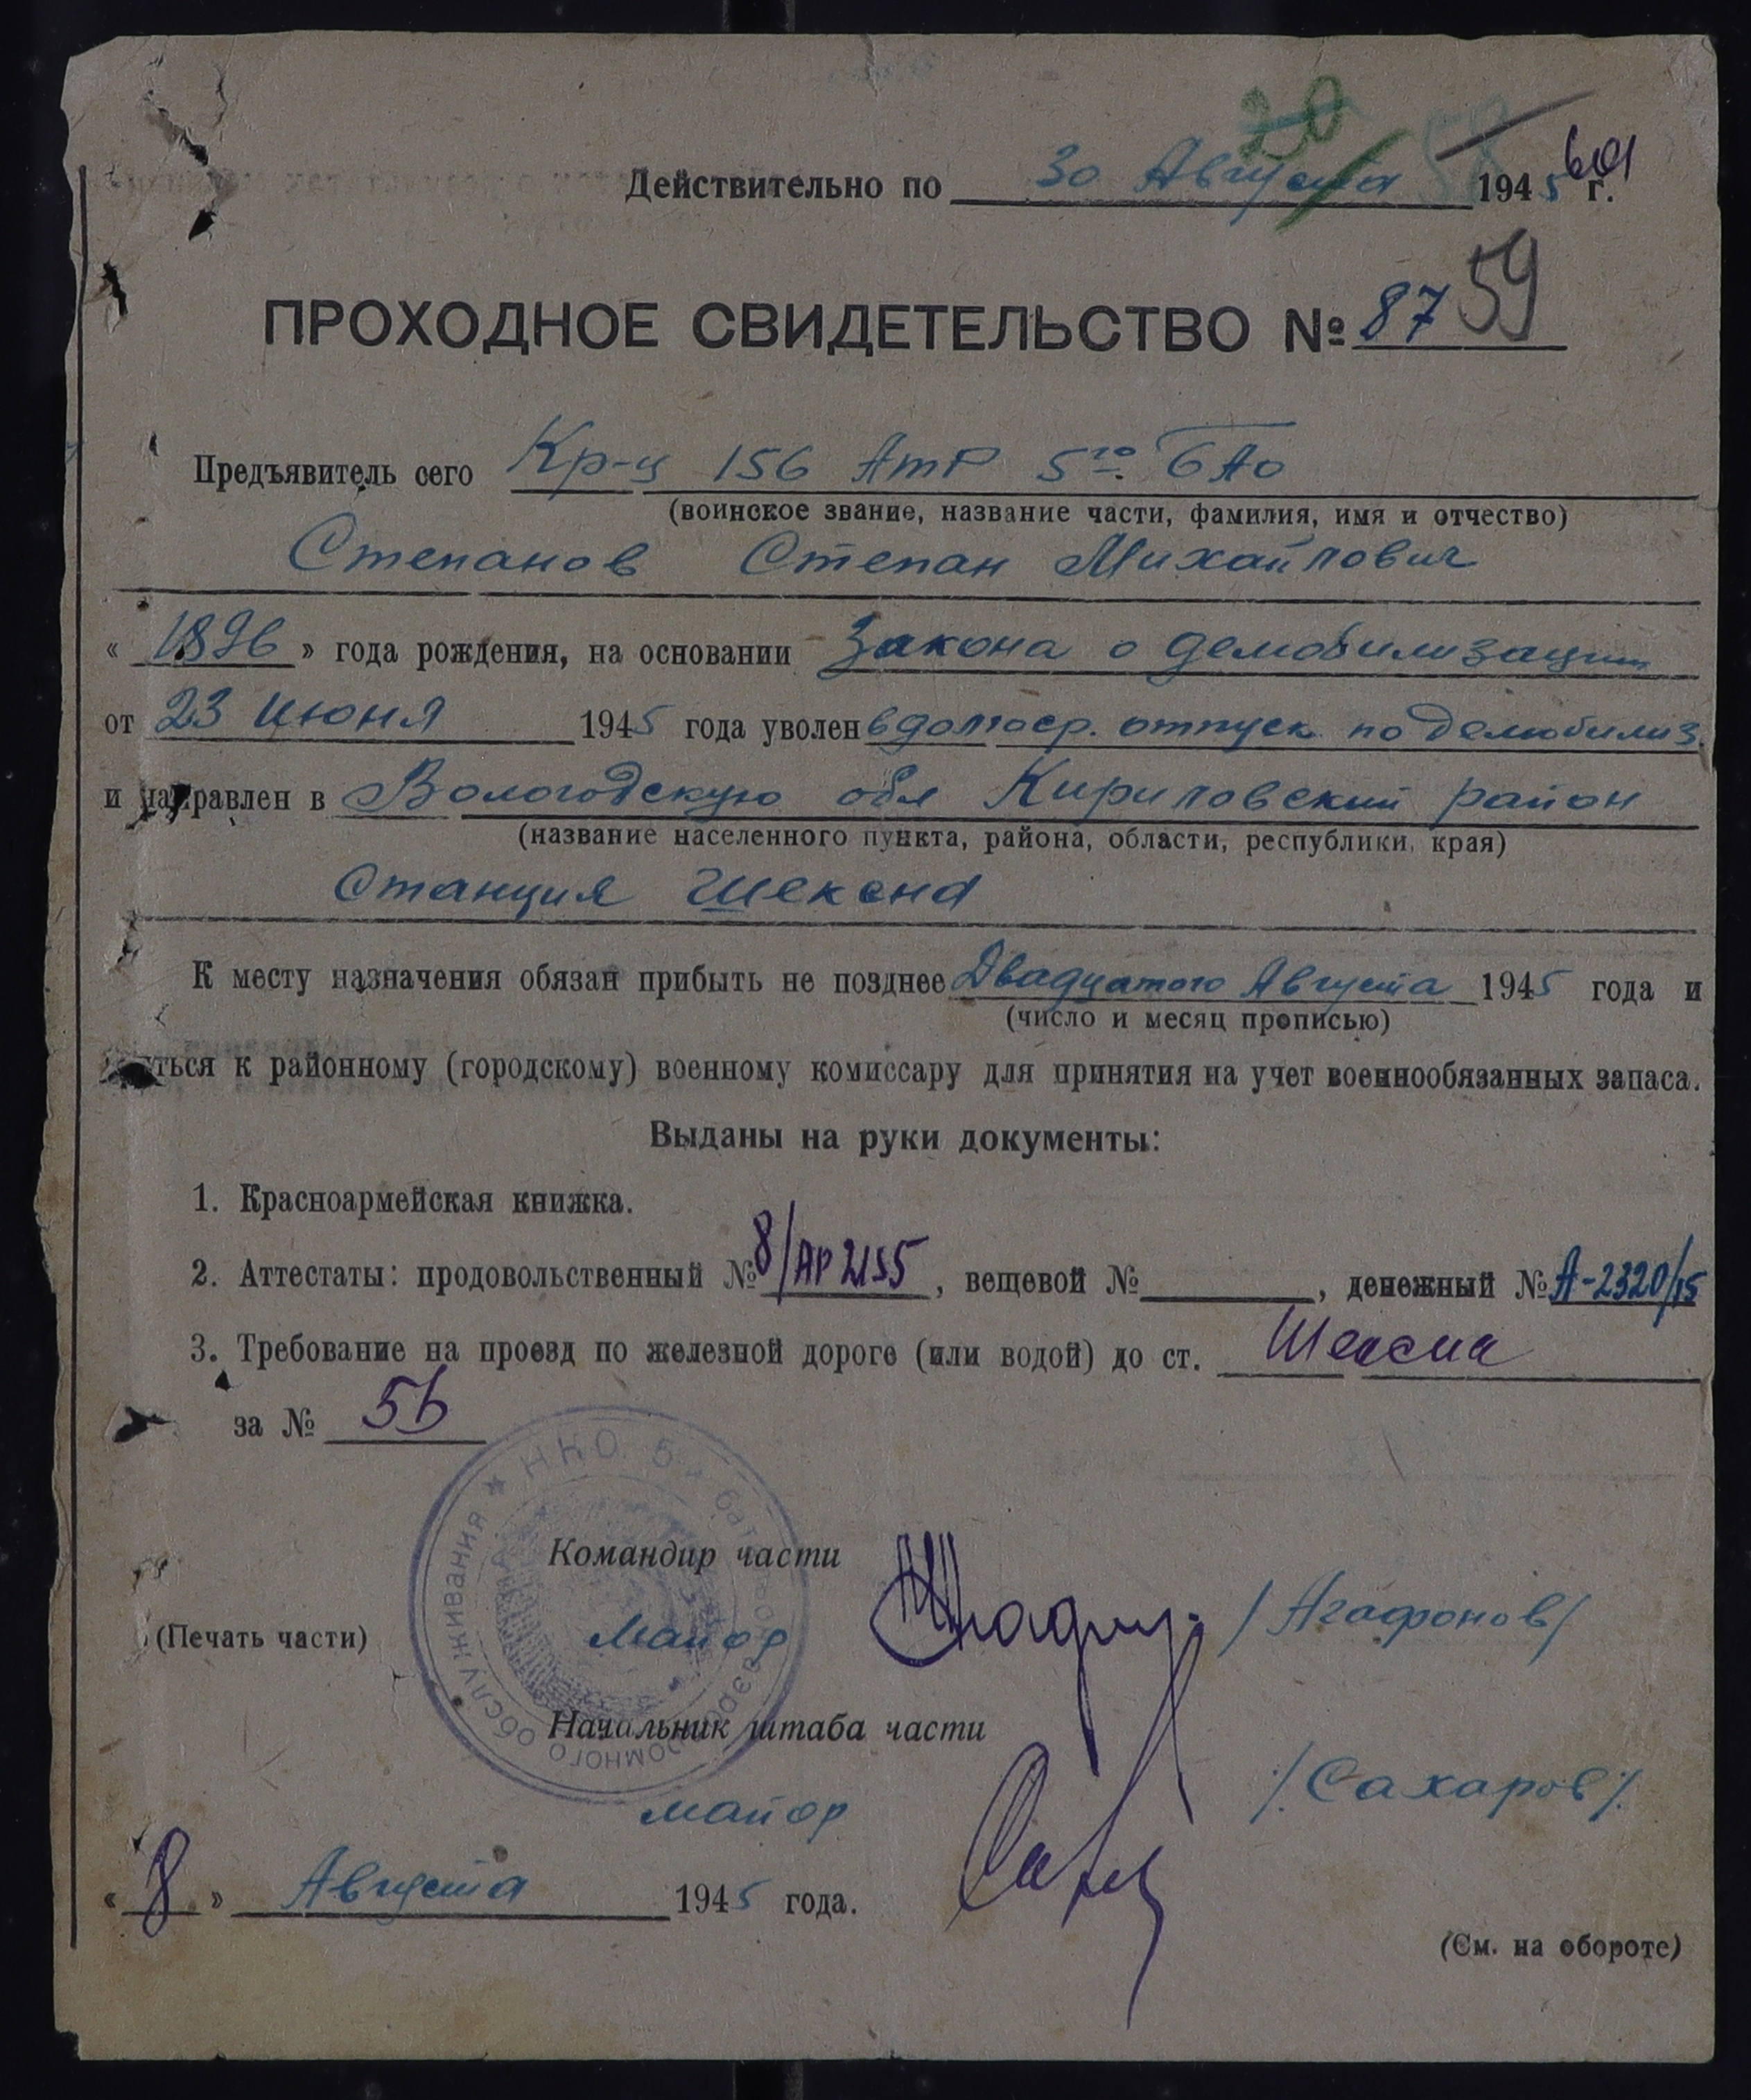 20
58
601
Действительно по 30 Августа 1945 г.
ПРОХОДНОЕ СВИДЕТЕЛЬСТВО № 87
59
Предъявитель сего Кр-ц 156 АтР 5го БАО
(воинское звание, название части, фамилия, имя и отчество)
Степанов Степан Михайлович
« 1896 » года рождения, на основании Закона о демобилизации
от 23 июня 1945 года уволен в долгоср. отпуск по демобилиз.
и направлен в Вологодскую обл Кириловский район
(название населенного пункта, района, области, республики, края)
Станция Шексна
К месту назначения обязан прибыть не позднее Двадцатого Августа 1945 года и
ться к районному (городскому) военному комиссару для принятия на учет военнообязанных запаса.
(число и месяц прописью)
Выданы на руки документы:
1. Красноармейская книжка.
2. Аттестаты: продовольственный № 8/АР 2155, вещевой № , денежный № А-2320/15
3. Требование на проезд по железной дороге (или водой) до ст. Шексна
за № 56
НКО 5 бат аэродромного обслуживания
Командир части
(Печать части) Майор /Агафонов/
Начальник штаба части
майор /Сахаров/
« 8 » Августа 1945 года.
(См. на обороте)